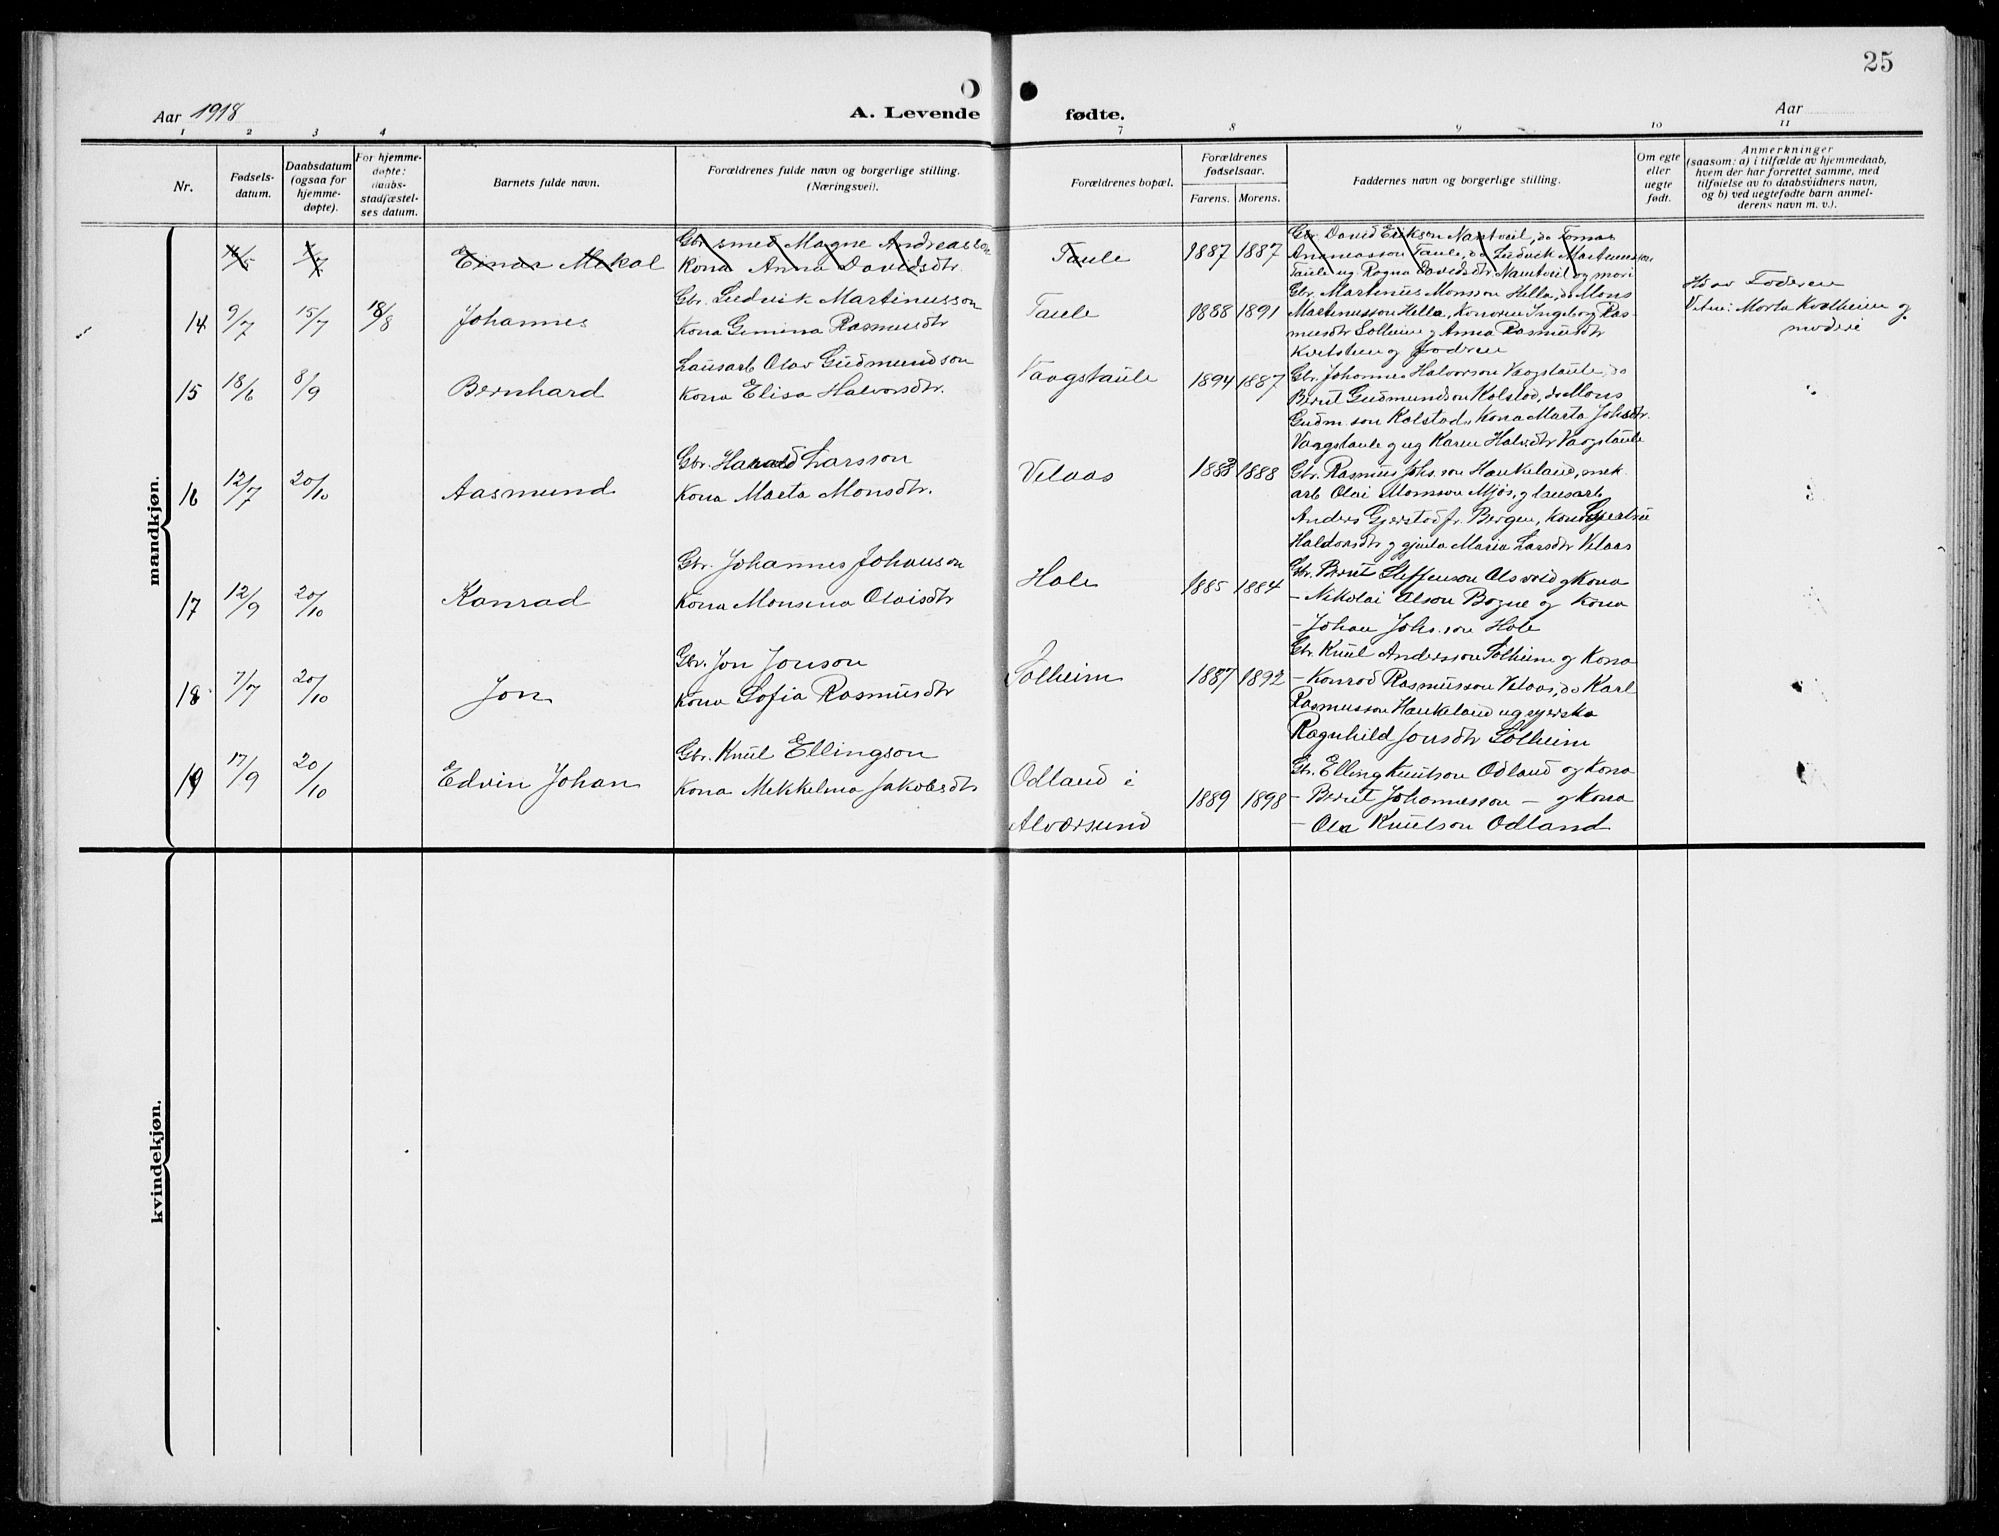 25
Aar 1918
A. Levende
fødte.
Aar
1 2 3 4 7 8 9 10 11
Nr.
Fødsels-
datum.
Daabsdatum
(ogsaa for
hjemme-
døpte).
For hjemme-
døpte:
daabs-
stadfæstel-
ses datum.
Barnets fulde navn.
Forældrenes fulde navn og borgerlige stilling.
(Næringsvei).
Forældrenes bopæl.
Forældrenes
fødselsaar.
Farens. Morens.
Faddernes navn og borgerlige stilling.
Om egte
eller
uegte
født.
Anmerkninger
(saasom: a) i tilfælde av hjemmedaab,
hvem der har forrettet samme, med
tilføielse av to daabsvidners navn,
og b) ved uegtefødte barn anmel-
derens navn m. v.).
mandkjøn.
Einar Mekal
Gbr smed Magne Andreasson
Kona Anna Davidsdtr.
Taule
1887 1887
Gbr David Erikson Nautveit, do Tomas
Ananiasson Taule, do Ludvik Martinusson
Taule ug Ragna Davidsdtr Nautveit og mori
14 9/7 15/7 18/8
Johannes
Gbr. Ludvik Martinusson
Kona Gemina Rasmusdtr
Taule
1888 1891
Gbr. Martinus Monsson Hella, do Mons
Martinusson Hella, Konorne Ingeborg Ras-
musdtr Solheim og Anna Rasmusdtr
Kvitstein og Faderen
Hd av Faderen
Vitne: Marta Kvalheim og
moderi
15 18/6 8/9
Bernhard
Lausarb Olav Gudmundson
Kona Elisa Halvorsdtr.
Vaagstaule
1894 1887
Gbr. Johannes Halvorson Vaagstaule, do
Berut Gudmundson Kolstad, do Mons
Gudm.son Kolstad, Kona Marta Johsdtr.
Vaagstaule og ug Karen Halvsdtr Vaagstaule
16 12/7 20/10
Aasmund
Gbr. Harald Larsson
Kona Marta Monsdtr.
Velaas
1883 1888
Gbr. Rasmus Johs.son Haukeland, mek.
arb Olai Monsson Mjøs, og lausarb
Anders Gjerstad fr. Bergen, Kona Gjertrue
Haldorsdtr og gjenta Maria Larsdtr Velaas
17 12/9 20/10
Konrad
Gbr. Johannes Johanson
Kona Monsina Olaisdtr
Hole
1885 1884
Gbr. Berut Steffenson Alsvold og Kona
– Nikolai Alson Bogne og Kona
– Johan Johs.son Hole
18 7/7 20/10
Jon
Gbr. Jon Jonson
Kona Sofia Rasmusdtr
Solheim
1887 1892
Gbr. Knut Andersson Solheim og Kona
– Konrad Rasmusson Velaas, do Karl
Rasmusson Haukeland ug syerska
Ragnhild Jonsdtr Solheim
19 17/9 20/10
Edvin Johan
Gbr. Knut Ellingson
Kona Mekkelina Jakobsdtr
Odland i
Alværsund
1889 1898
Gbr. Elling Knutson Odland og Kona
– Berut Johannesson – og Kona
– Ola Knutson Odland
kvindekjøn.